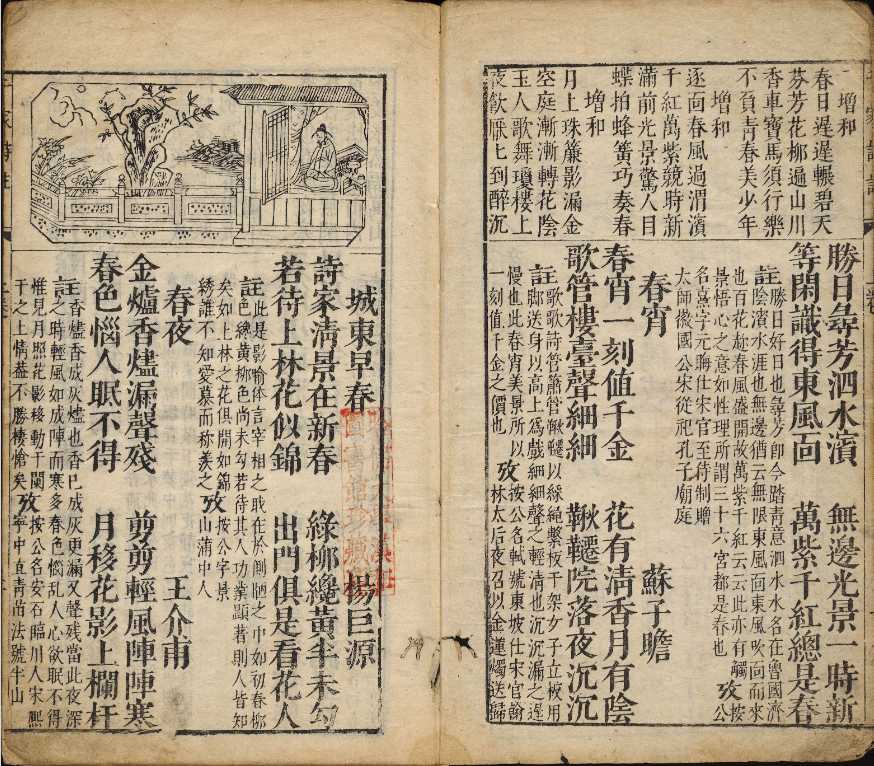 增和
春日遲遲輾碧天
芬芳花柳遍山川
香車寶馬須行樂
不負青春美少年
增和
逐向春風過渭濱
千紅萬紫競時新
滿前光景驚人目
蝶拍蜂簧巧奏春
增和
月上珠簾影漏金
空庭漸漸轉花陰
玉人歌舞瓊樓上
夜飲厭匕到醉沉
勝日尋芳泗水濱 無邊光景一時新
等閑識得東風面 萬紫千紅總是春
註勝日好日也尋芳即今踏青意泗水水名在魯國濟
陰濱水涯也無邊猶云無限東風面東風吹面而來
也百花趂春風盛開故萬紫千紅云云此亦有觸
景悟心之意如性理所謂三十六宮都是春也 攷按公
名熹字元晦仕宋官至待制贈
太師徽國公宋從祀孔子廟庭
春宵 蘇子瞻
春宵一刻值千金 花有清香月有陰
歌管樓臺聲細細 鞦韆院落夜沉沉
註歌歌詩管簫管鞦韆以綵繩繫板干架女子立板用
脚送身以高上爲戲細細聲之輕清也沉沉漏之遲
慢也此春宵美景所以
一刻值千金之價也 攷按公名軾號東坡仕宋官翰
林太后夜召以金蓮燭送歸
城東早春 楊巨源
詩家清景在新春 綠柳纔黃半未勻
若待上林花似錦 出門俱是看花人
註此是影喻体言宰相之戝在於側陋之中如初春柳
色纔黃柳色尚未勻若待其人功業顯著則人皆知
矣如上林之花俱開如錦
綉誰不知愛慕而称羡之 攷按公字景
山蒲中人
春夜 王介甫
金爐香燼漏聲殘 剪剪輕風陣陣寒
春色惱人眠不得 月移花影上欄杆
註香燼香成灰燼也香已成灰更漏又聲残當此夜深
之時輕風如成陣而寒多春色惱乱人心欲眠不得
惟見月照花影移動干闌
干之上情葢不勝棲愴矣 攷按公名安石臨川人宋熈
寧中直青苗法號半山